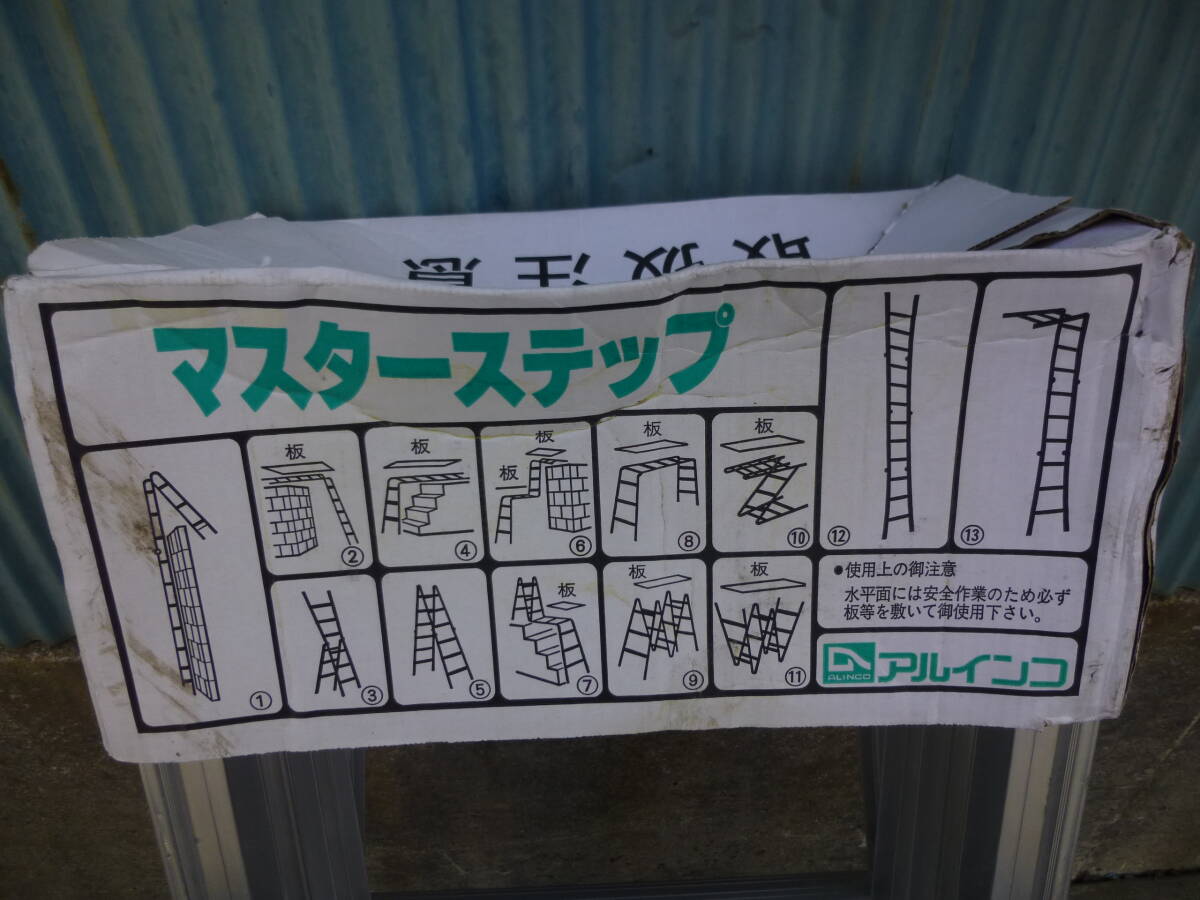 取扱注意
マスターステップ
①
板
②
③
板
④
⑤
板
板
⑥
板
⑦
板
⑧
板
⑨
板
⑩
板
⑪
⑫
⑬
●使用上の御注意
水平面には安全作業のため必ず
板等を敷いて御使用下さい。
ALINCO
アルインコ